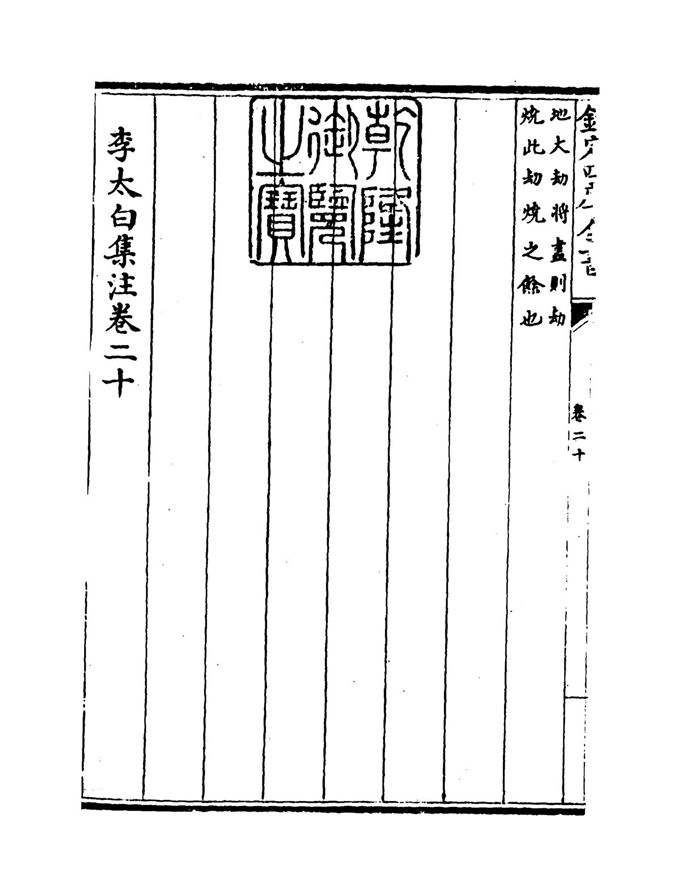 欽定四庫全書
卷二十
地大劫將盡則劫
燒此劫燒之餘也
乾隆
御覽
之寶
李太白集注卷二十